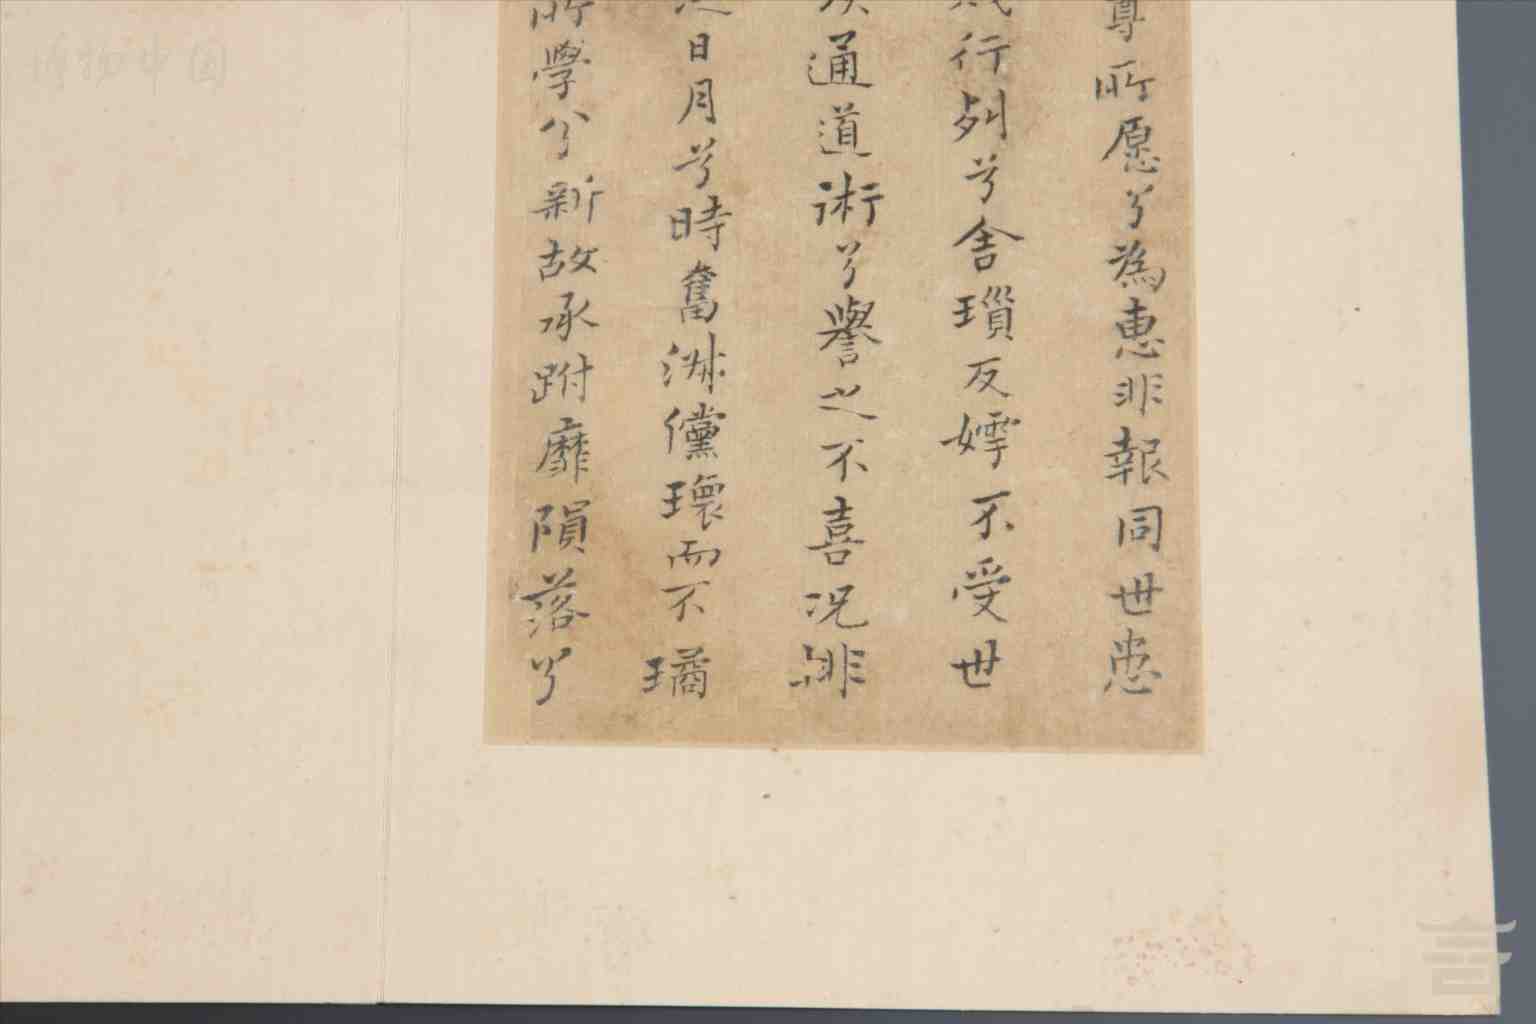 尊所愿兮為惠非報同世患
行列兮舍瓆反嫮不受世
通道術兮譽之不喜况誹
日月兮時奮淋儻瓌而不璚
所學兮新故承跗靡隕落兮
博物中国